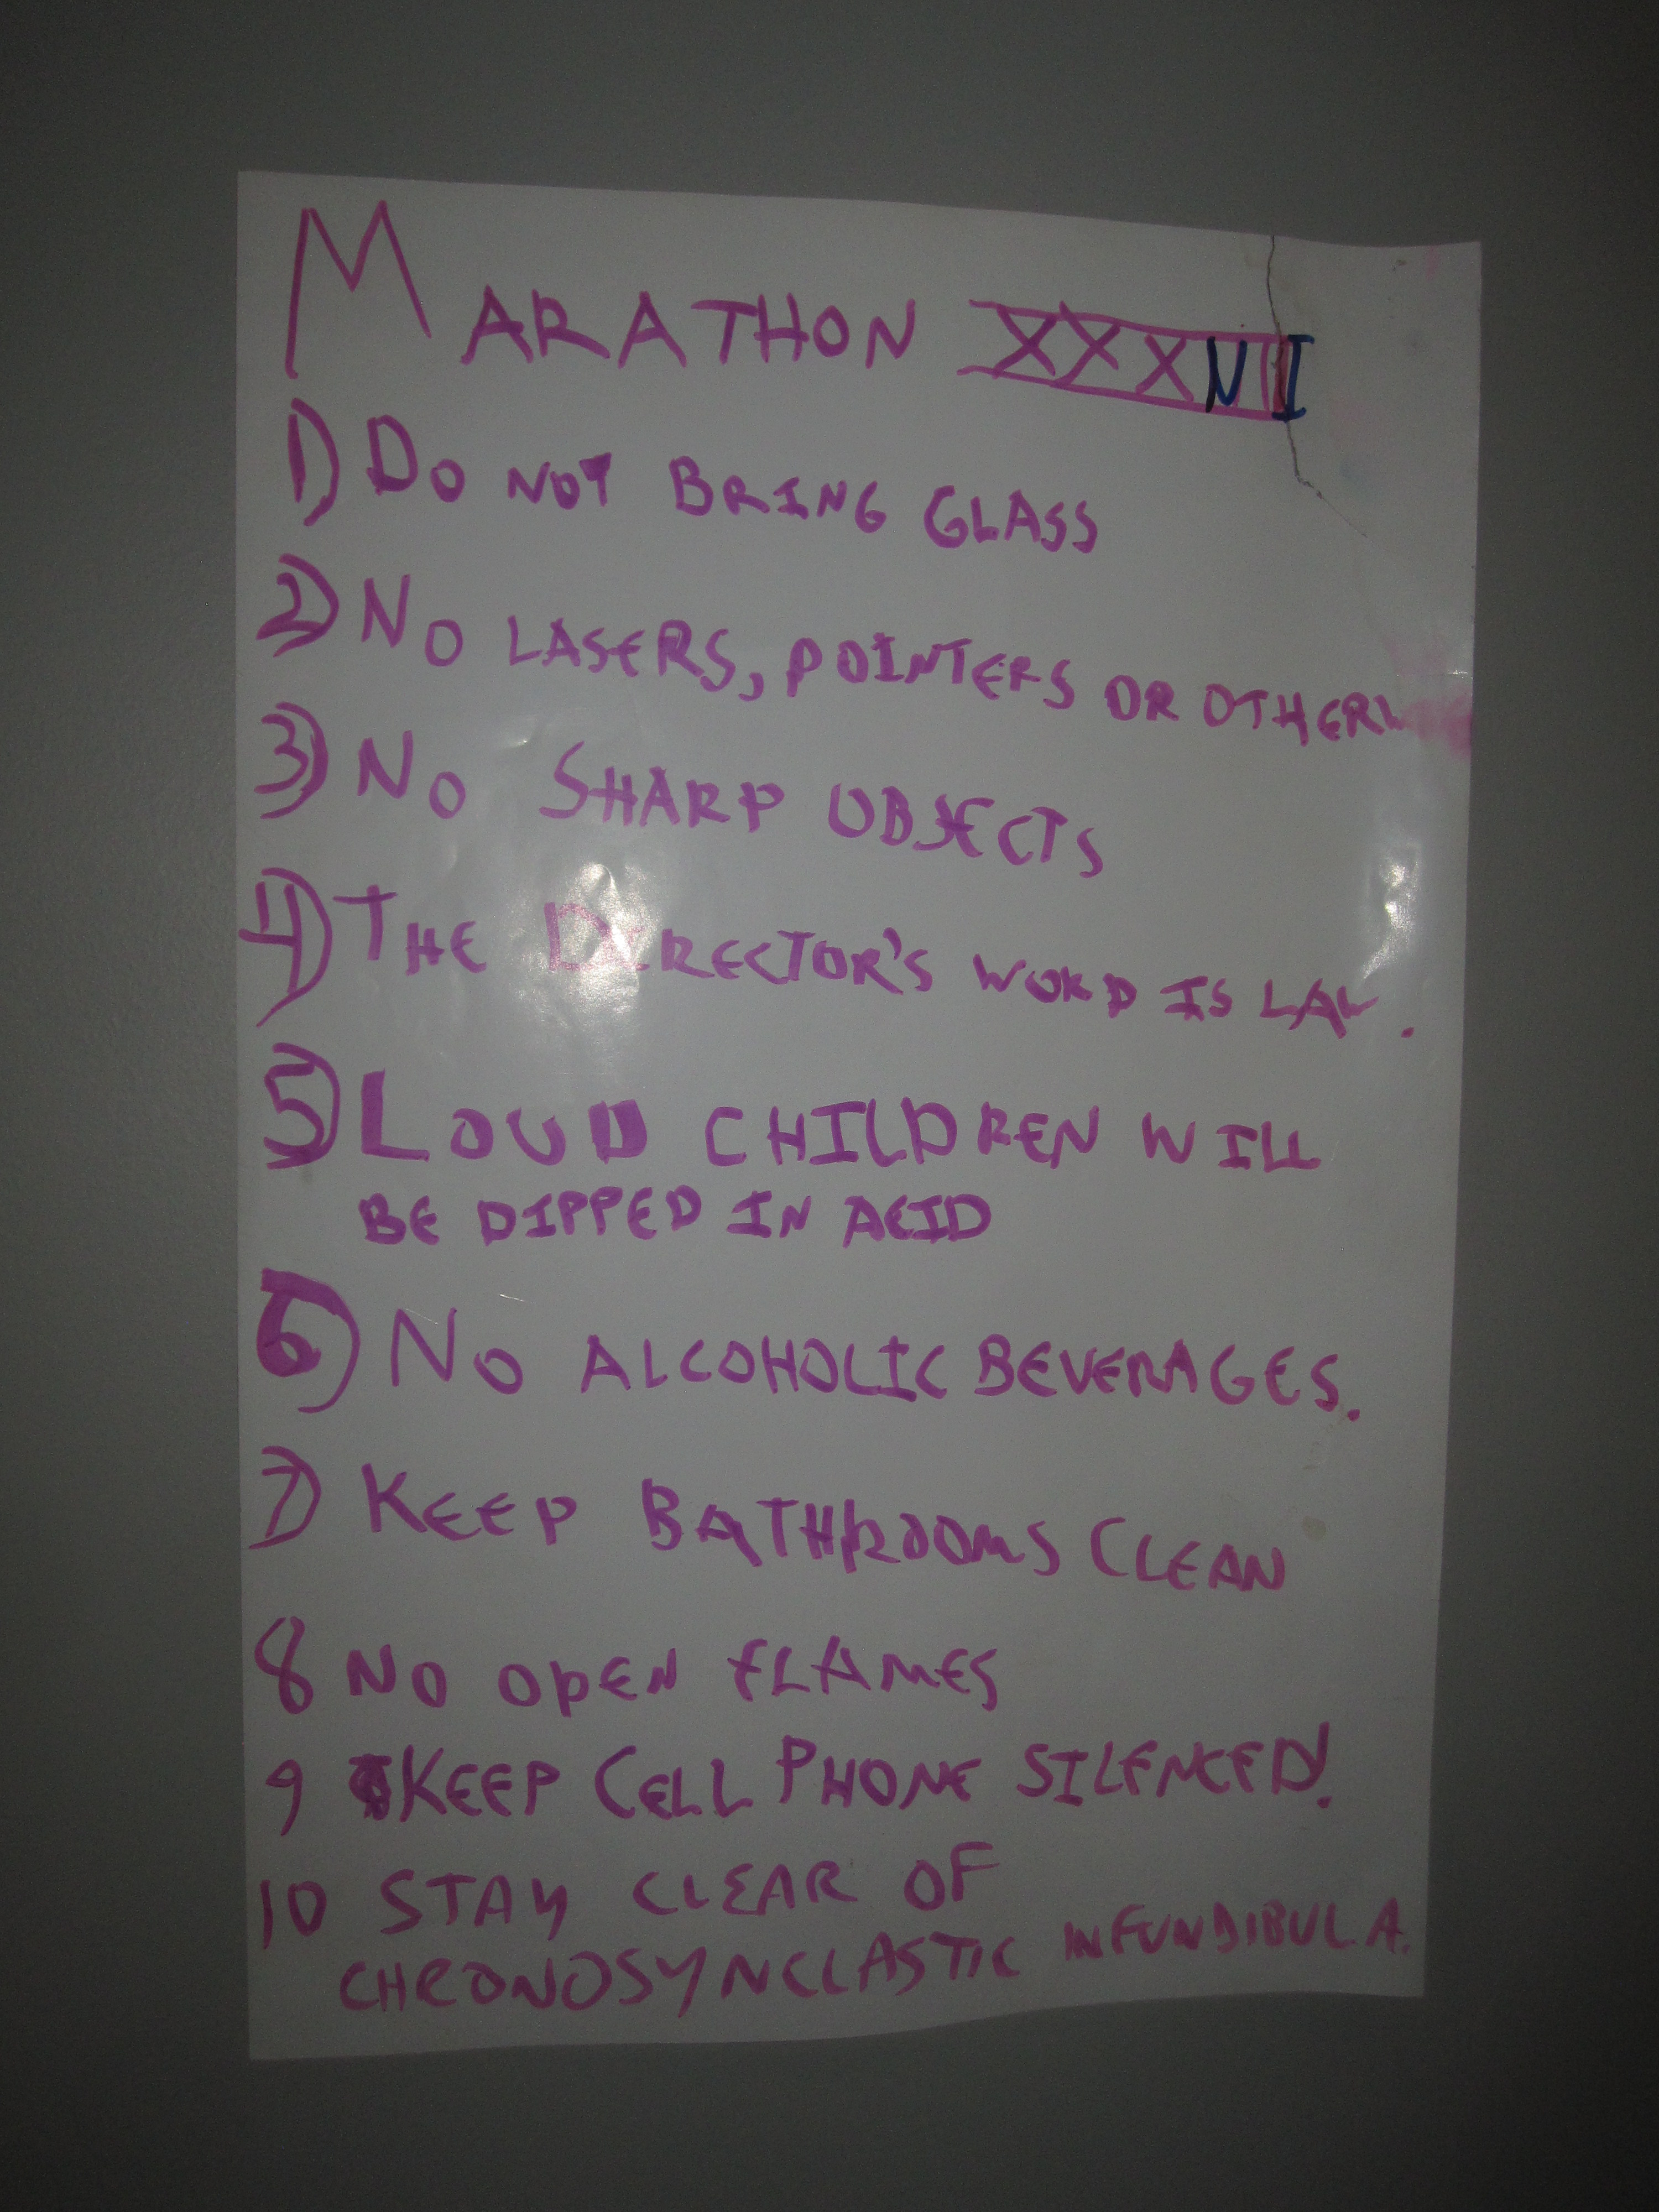 MARATHON
1) DO NOT BRING GLASS
2) NO LASERS, POINTERS OR
3) NO SHARP OBJECTS
4) THE DIRECTOR'S WORD IS LAW.
5) LOUD CHILDREN WILL
BE DIPPED IN ACID
6) NO ALCOHOLIC BEVERAGES.
7) KEEP BATHROOMS CLEAN
8 NO OPEN FLAMES
9 KEEP CELL PHONE SILENCED!
10 STAY CLEAR OF
CHRONOSYNCLASTIC INFUNDIBULA.